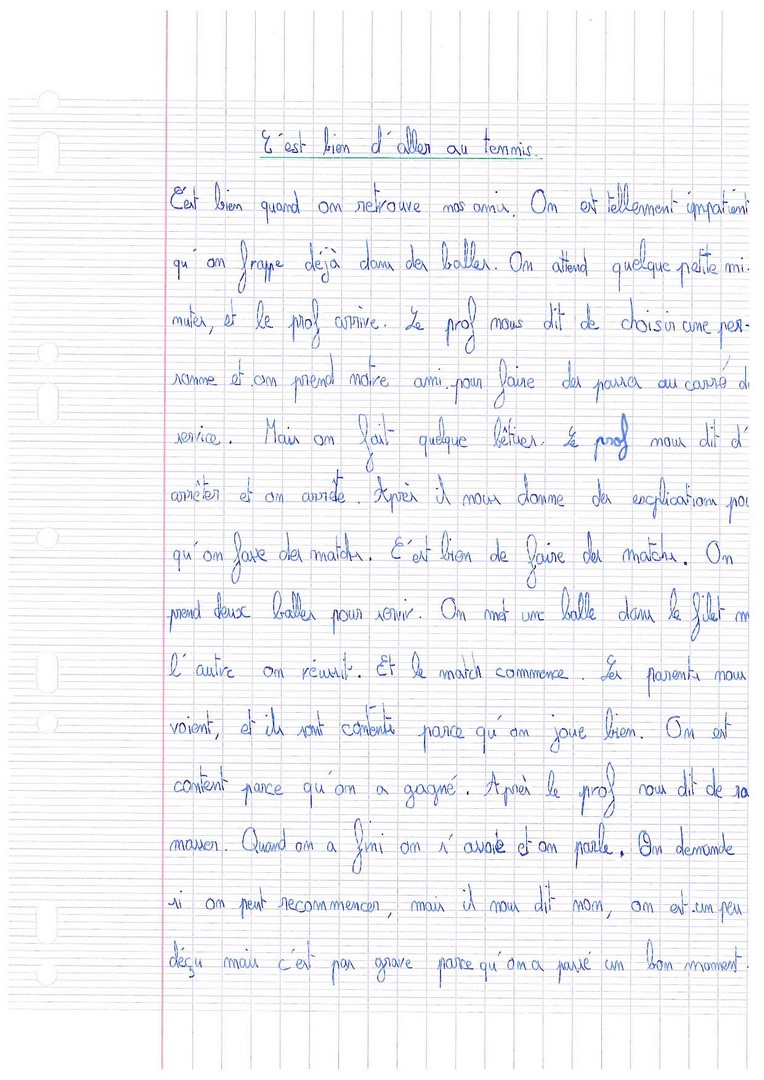 C'est bien d'aller au tennis.
C'est bien quand on retrouve nos amis. On est tellement impatient
qu'on frappe déjà dans des balles. On attend quelque petite mi-
nutes, et le prof arrive. Le prof nous dit de choisir une per-
sonne et on prend notre ami pour faire des passes au carré d
service. Mais on fait quelque bêtises. Le prof nous dit d'
arrêter et on arrête. Après il nous donne des explications pou
qu'on fasse des matchs. C'est bien de faire des matchs. On
prend deux balles pour servir. On met une balle dans le filet m
l'autre on réussit. Et le match commence. Les parents nous
voient, et ils sont contents parce qu'on joue bien. On est
content parce qu'on a gagné. Après le prof nous dit de ra
masser. Quand on a fini on s'assoie et on parle. On demande
si on peut recommencer, mais il nous dit non, on est un peu
déçu mais c'est pas grave parce qu'on a passé un bon moment.